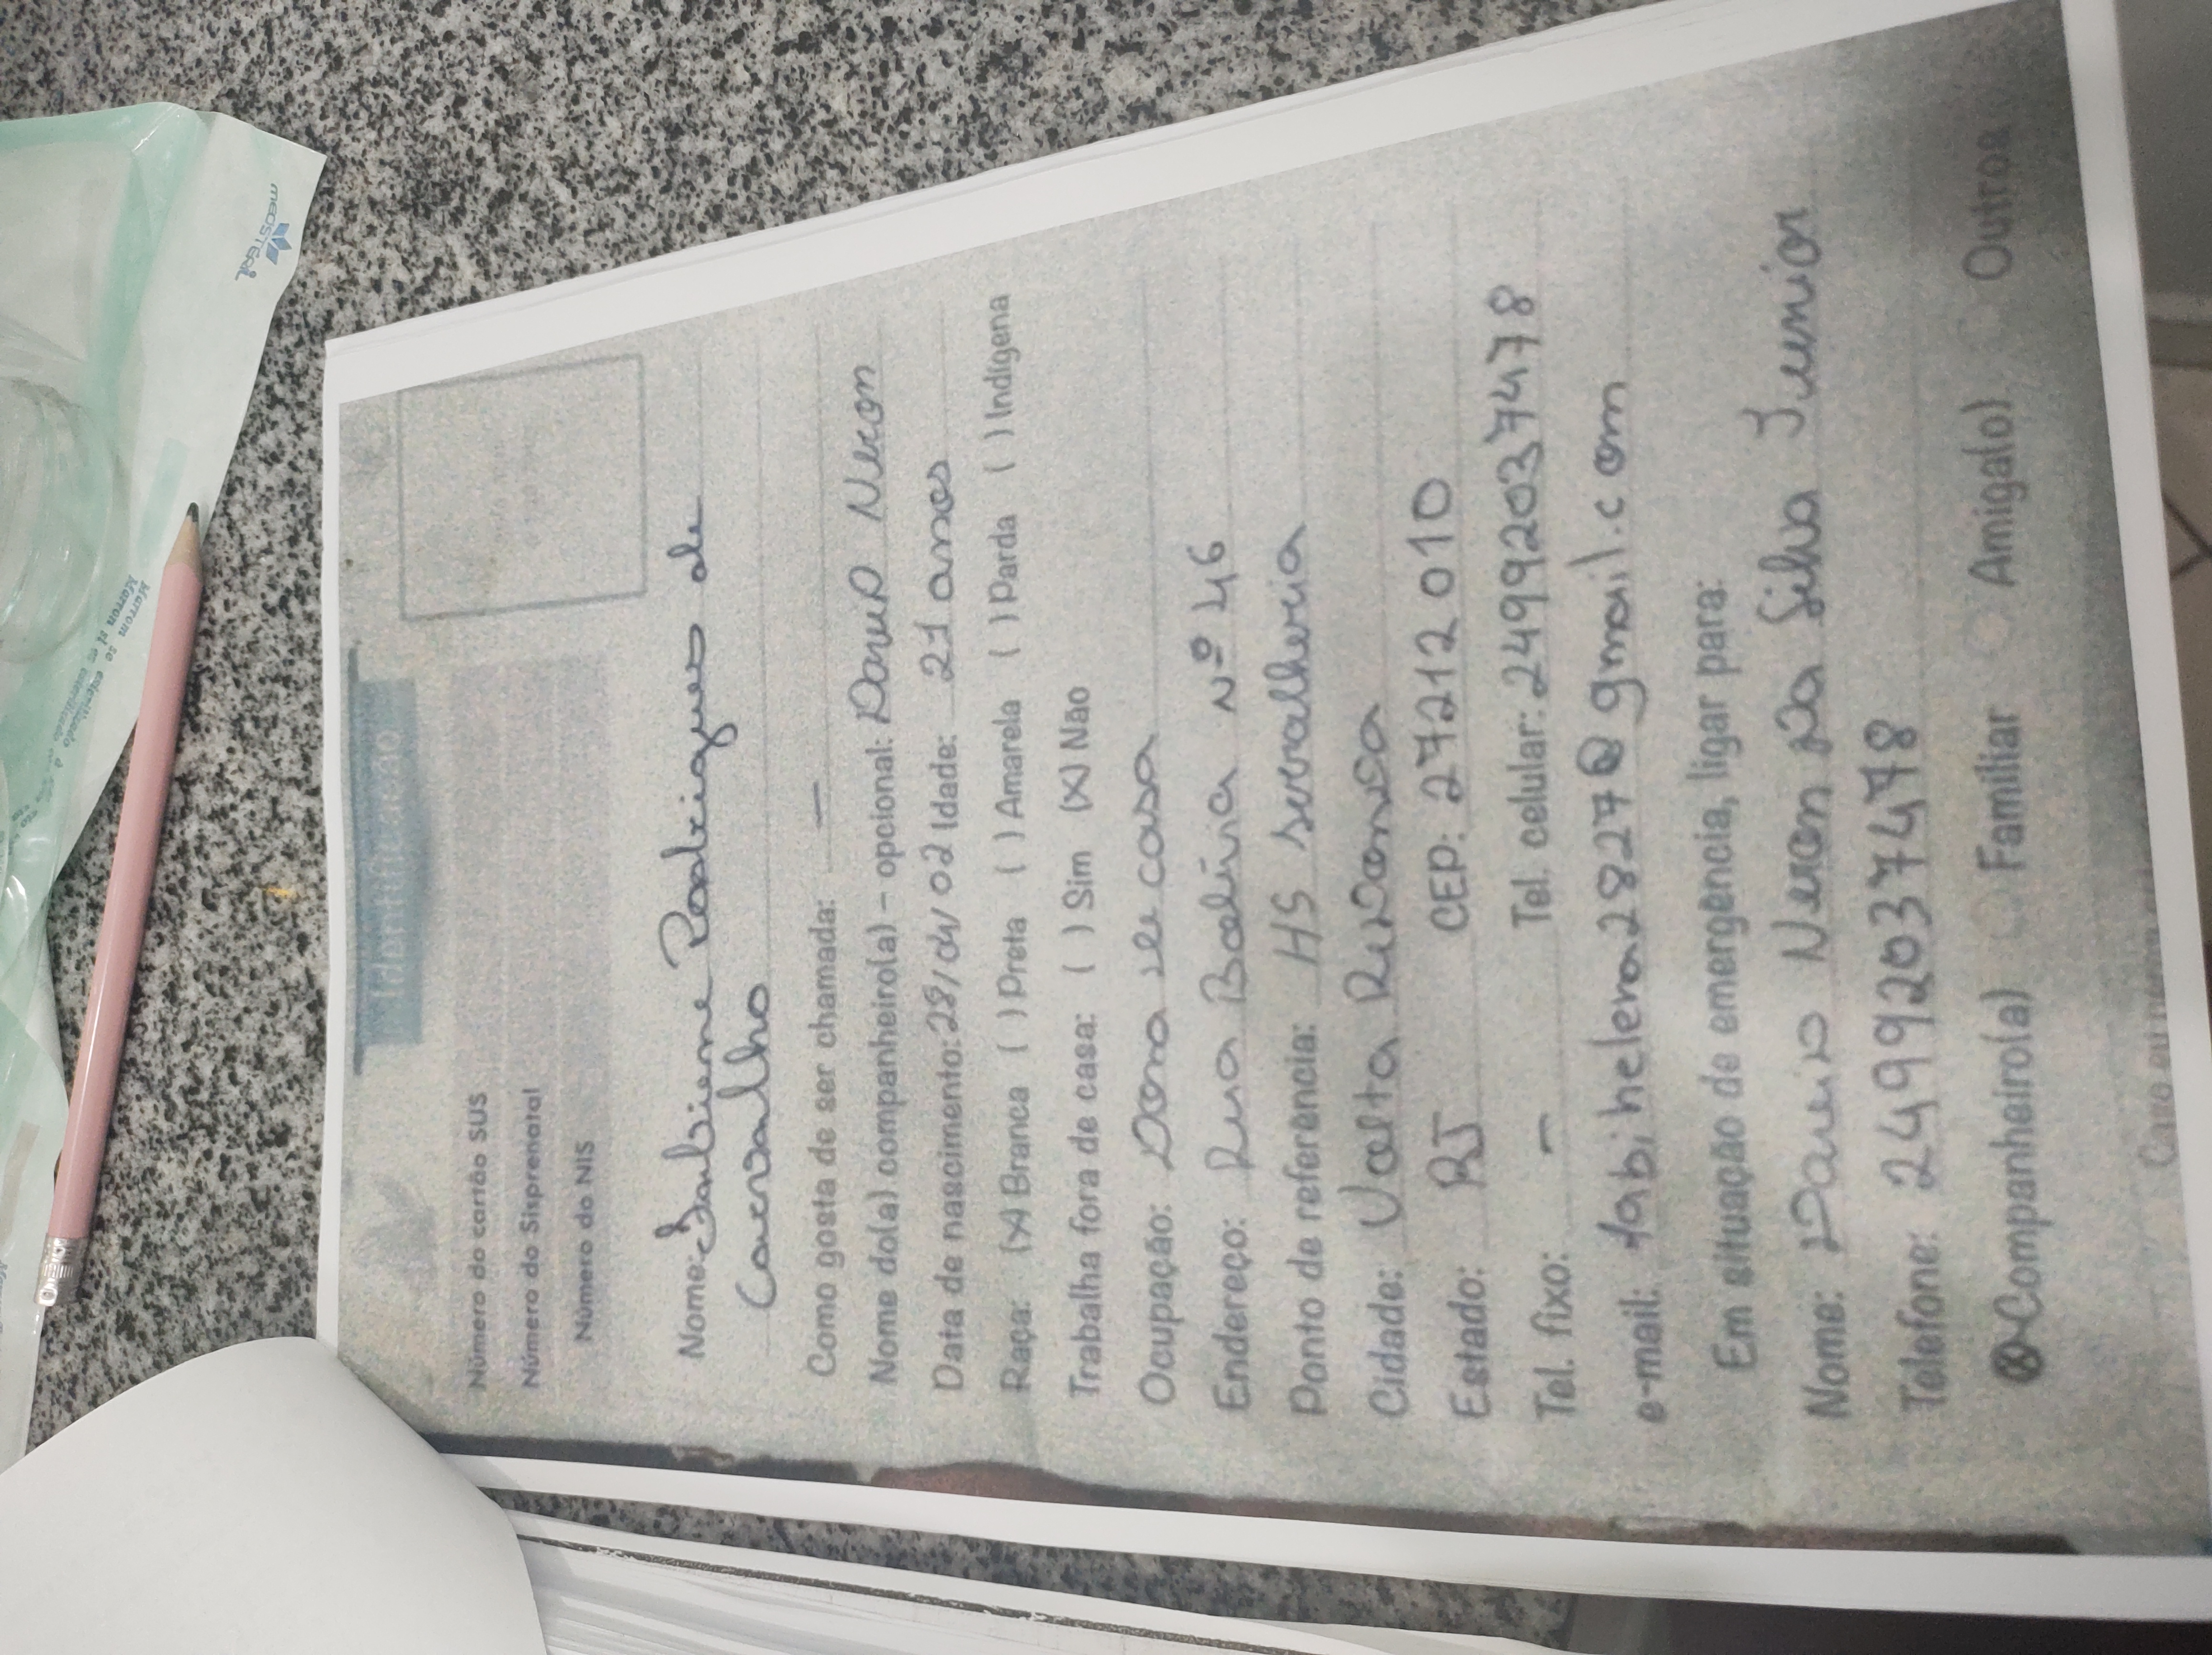 Identificação
Número do cartão SUS
Número do Sisprenatal
Número do NIS
Nome: Fabiene Rodrigues de
Carvalho
Como gosta de ser chamada: —
Nome do(a) companheiro(a) – opcional: David Neron
Data de nascimento: 28/04/02 Idade: 21 anos
Raça: (X) Branca ( ) Preta ( ) Amarela ( ) Parda ( ) Indígena
Trabalha fora de casa: ( ) Sim (X) Não
Ocupação: Dona de casa
Endereço: Rua Bolívia Nº 46
Ponto de referencia: HS serralheria
Cidade: Volta Redonda
Estado: RJ CEP: 27212010
Tel. fixo: – Tel. celular: 24999203747478
e-mail: fabihelena2827@gmail.com
Em situação de emergência, ligar para:
Nome: David Neron da Silva Junior
Telefone: 24999203747478
(X) Companheiro(a) Familiar Amiga(o) Outros
MEDSTÉRIL